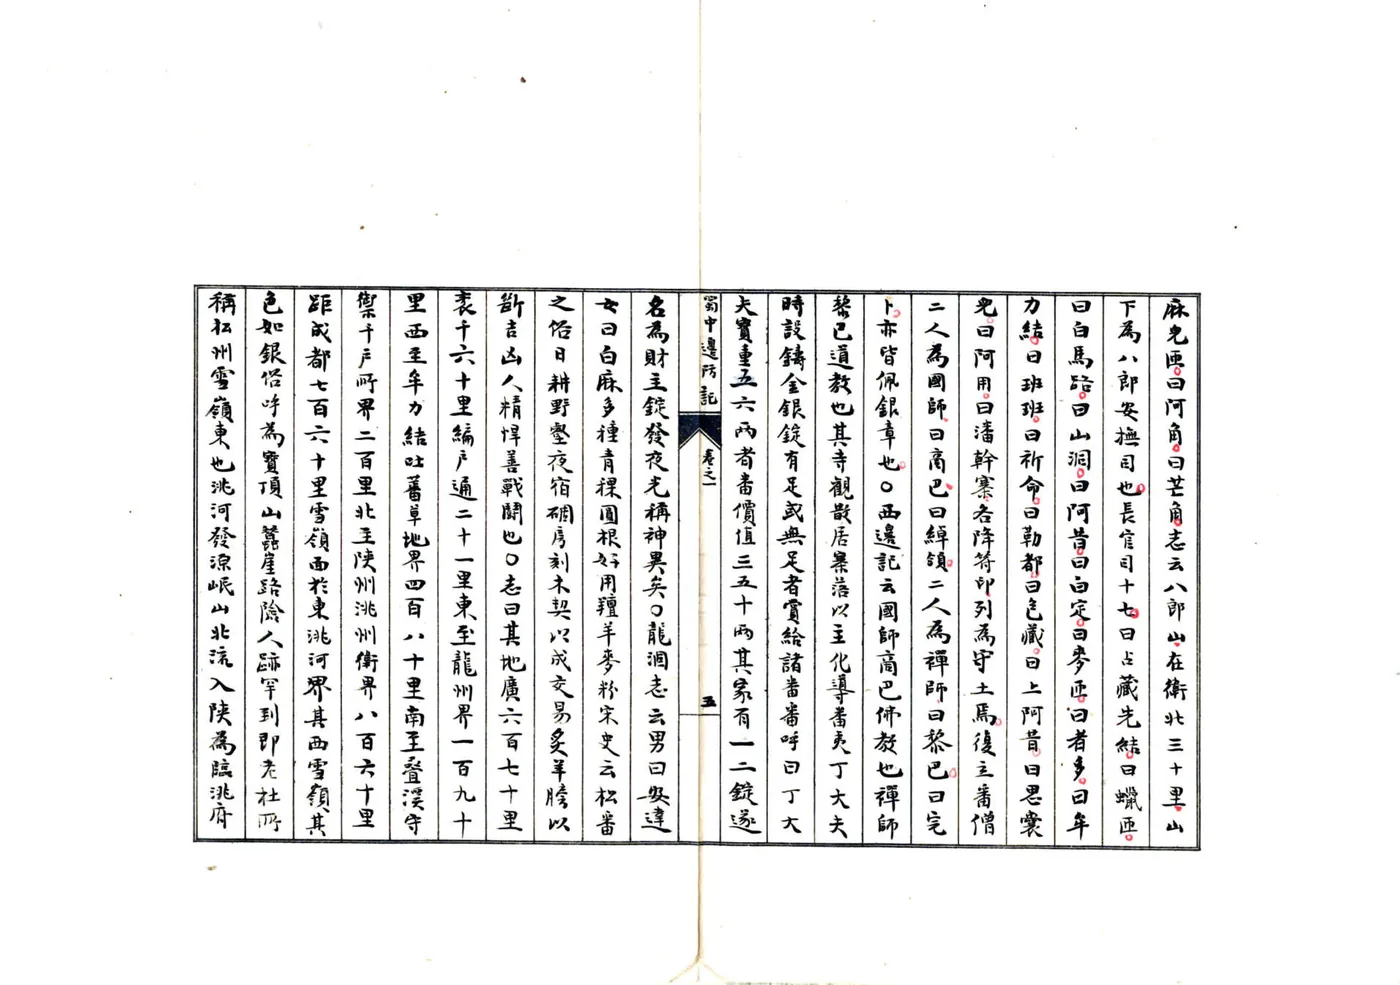 麻兒匝曰阿角曰芒角志云八郎山在衛北三十里山
下為八郎安撫司也長官司十七曰占藏先結曰蠟匝
曰白馬路曰山洞曰阿昔曰白定曰麥匝曰者多曰牟
力結曰班班曰祈命曰勒都曰包藏曰上阿昔曰思曩
兒曰阿用曰潘幹寨各降符印列為守土焉復立番僧
二人為國師曰商巴曰綽領二人為禪師曰黎巴曰完
卜亦皆佩銀章也〇西邊記云國師商巴佛教也禪師
黎巴道教也其寺觀散居寨落以主化導番夷丁大夫
時設鑄金銀錠有足或無足者賞給諸番番呼曰丁大
夫寶重五六兩者番價值三五十兩其家有一二錠遂
蜀中邊防記 卷之一 五
名為財主錠發夜光稱神異矣〇龍涸志云男曰安達
女曰白麻多種青稞圓根好用羶羊麥粉宋史云松番
之俗日耕野壑夜宿碉房刻木契以成交易炙羊膀以
斷吉凶人精悍善戰鬬也〇志曰其地廣六百七十里
袤千六十里編戶通二十一里東至龍州界一百九十
里西至牟力結吐蕃草地界四百八十里南至疊溪守
禦千戶所界二百里北至陝州洮州衛界八百六十里
距成都七百六十里雪嶺面於東洮河界其西雪嶺其
色如銀俗呼為寶頂山蠶崖路險人跡罕到即老杜所
稱松州雪嶺東也洮河發源岷山北流入陝為臨洮府